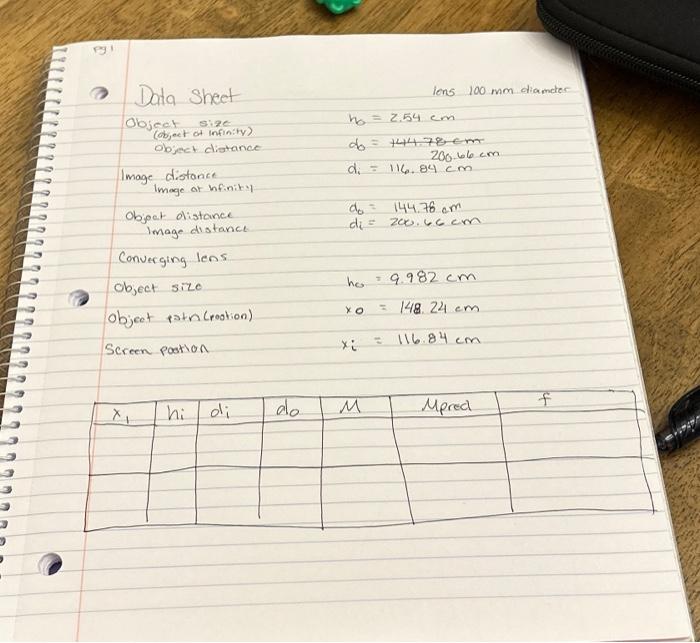 pg 1
Data Sheet lens 100 mm diameter
Object size ho = 2.54 cm
(object at infinity)
Object distance do = 144.78 cm
200.66 cm
Image distance di = 116.84 cm
Image at infinity
Object distance do = 144.78 cm
Image distance di = 200.66 cm
Converging lens
Object size ho = 9.982 cm
Object (position) xo = 148.24 cm
Screen postion xi = 116.84 cm
x1 hi di do M Mpred f